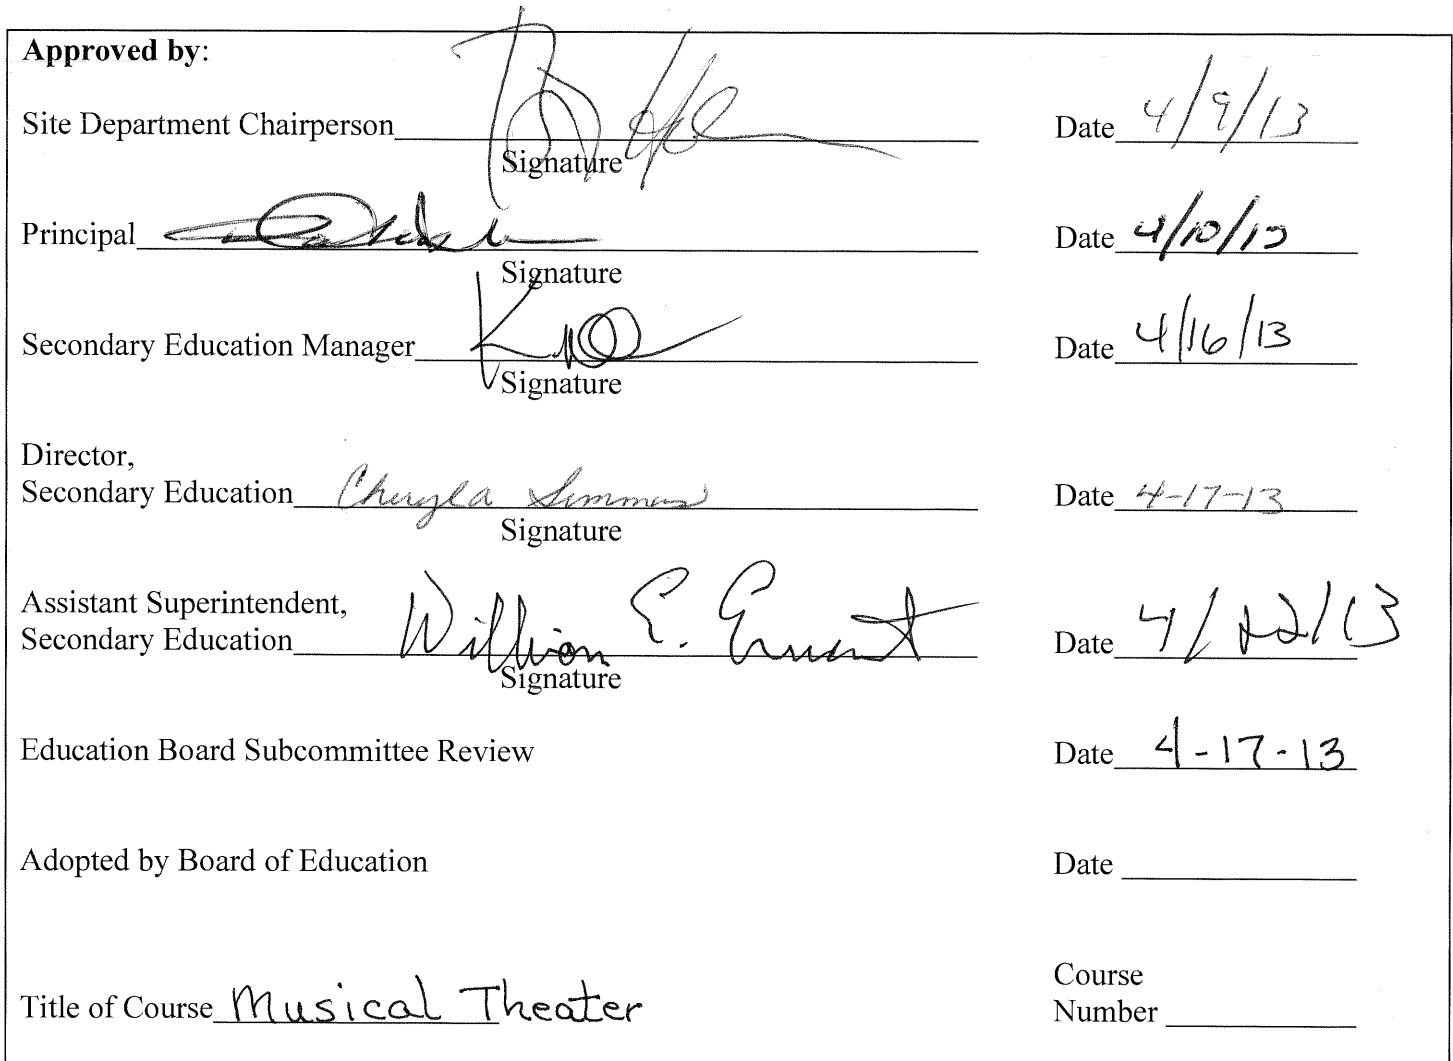 Approved by:
Site Department Chairperson Date 4/9/13
Signature
Principal Date 4/10/13
Signature
Secondary Education Manager Date 4/16/13
Signature
Director,
Secondary Education Cheryl A Simmons Date 4-17-13
Signature
Assistant Superintendent,
Secondary Education William E. Date 4/22/13
Signature
Education Board Subcommittee Review Date 4-17-13
Adopted by Board of Education Date
Course
Title of Course Musical Theater Number